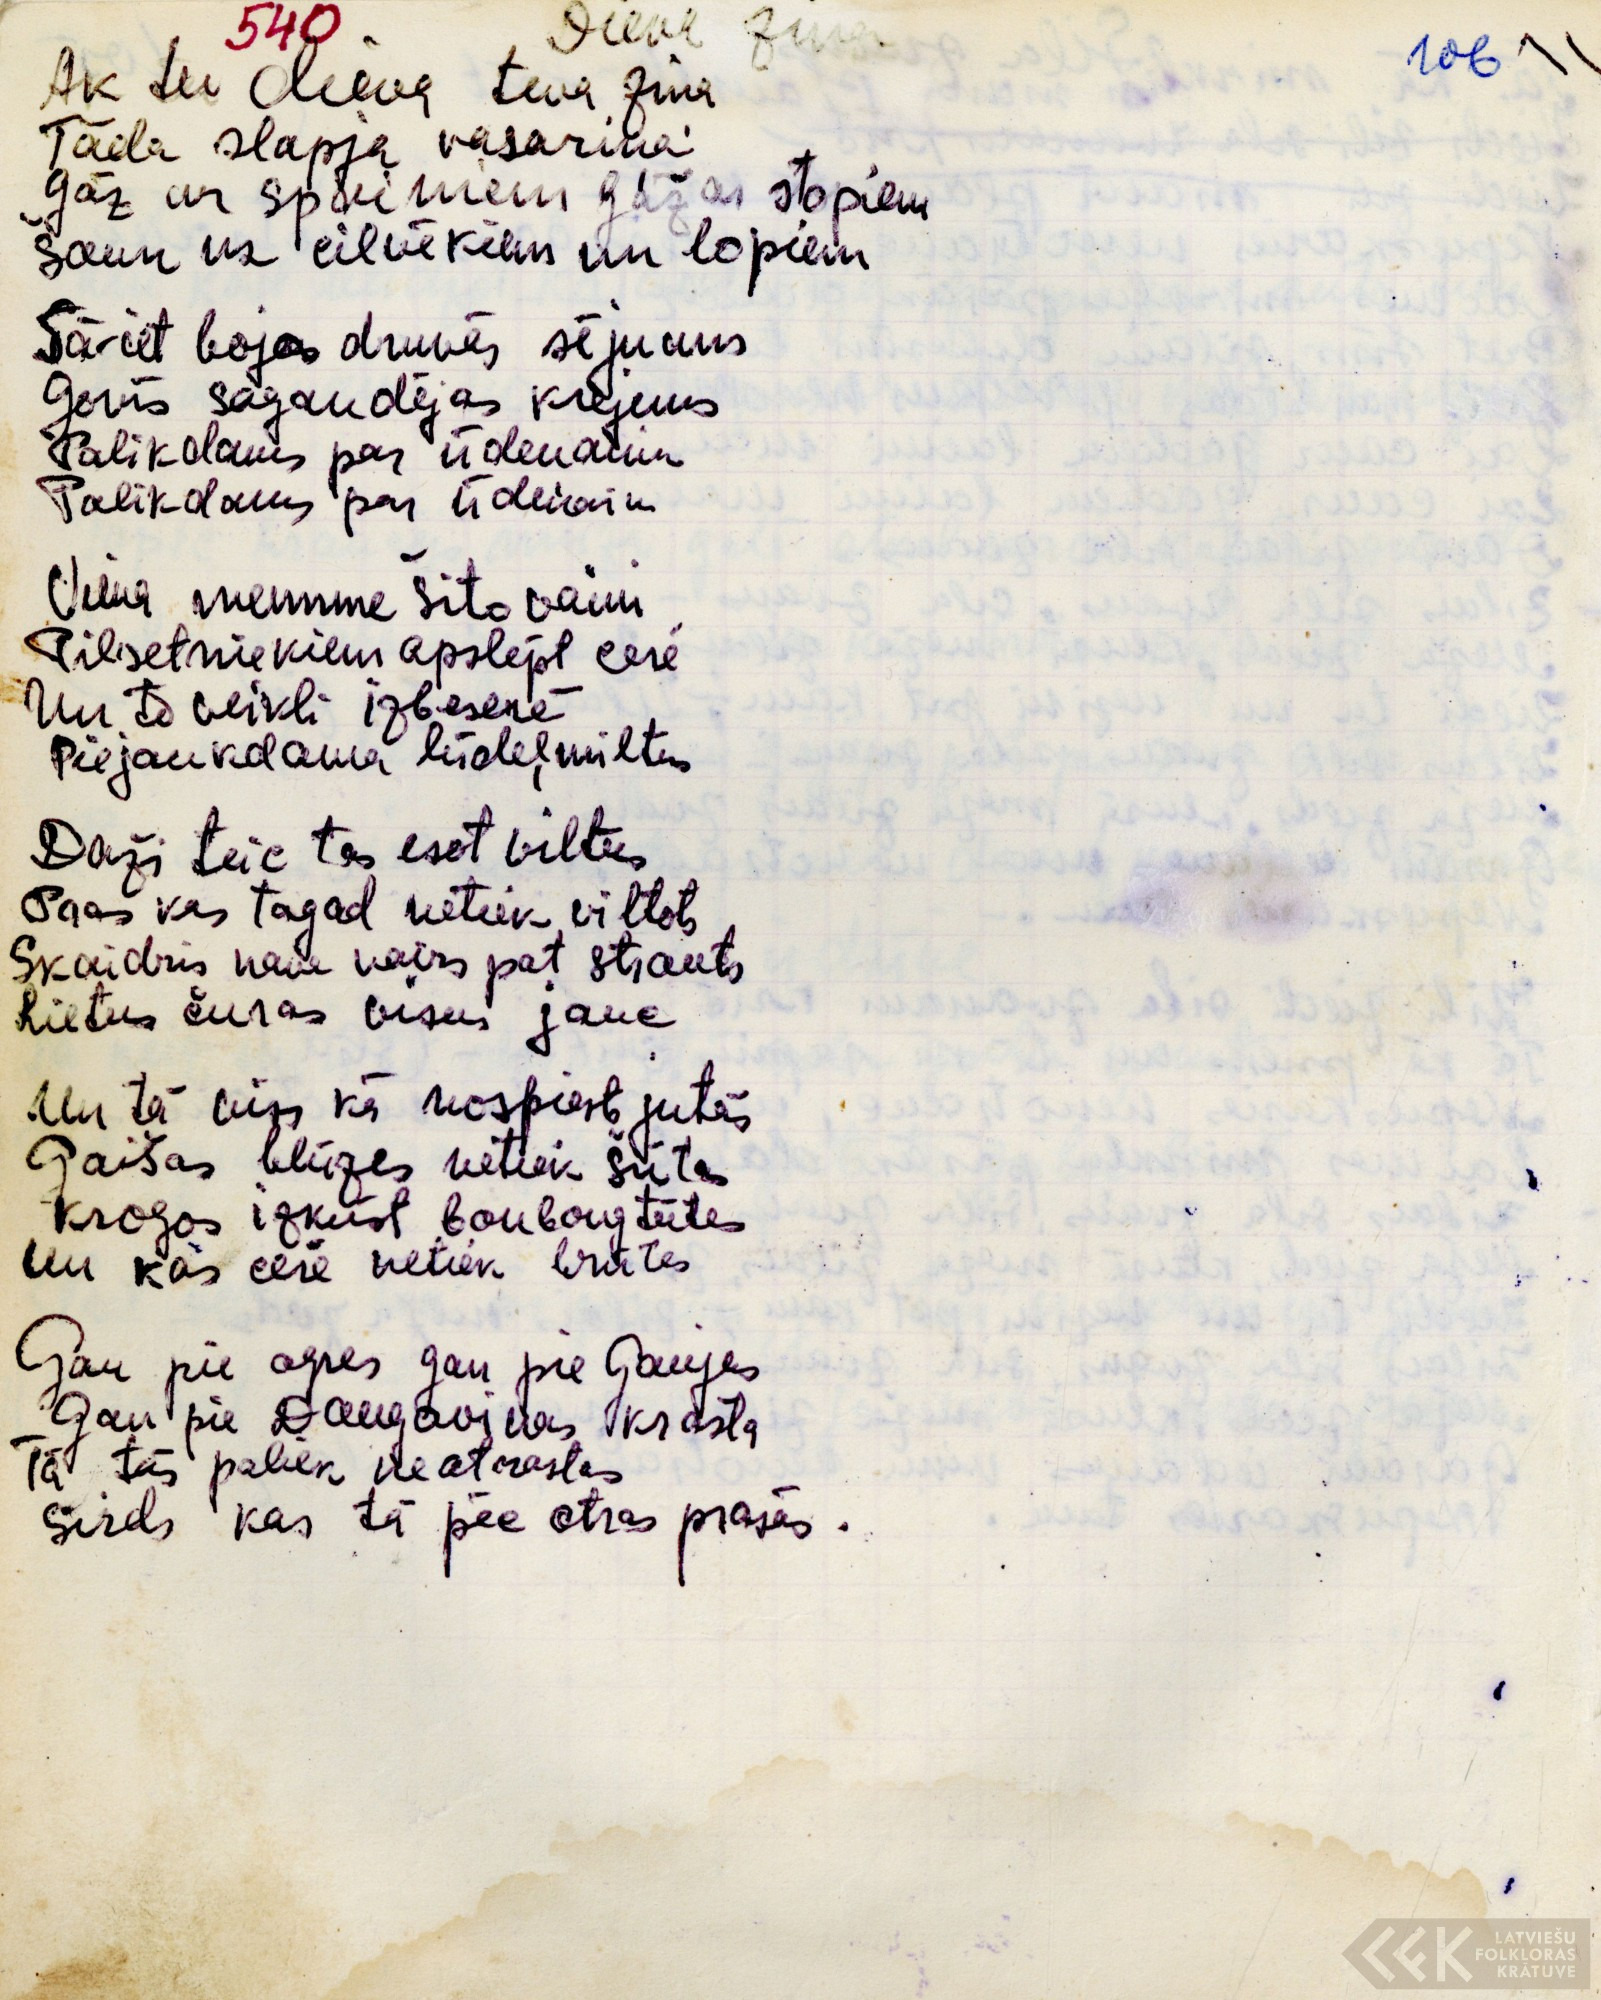 540. Dieva ziņa
106
Ak tu dieva teva ziņa
Tāda slapja vasariņa
Gāž ar spaiņiem gāžas stopiem
Šaun uz cilvēkiem un lopiem
Tā iet bojas druvās sējums
Govīs sagandējas krējums
Palikdams par ūdenaiņu
Palikdams par ūdenaiņu
Viena memme šito vainu
Pilsetniekiem apslēpt cerē
Un to veikli izbeserē
Piejaukdama līdeļmiltus
Daži teic tas esot viltus
Paas kas tagad netiek viltots
Skaidris nava vairs pat strauts
Lietus čuras visus jauc
Un tā viss kā nospiests jutās
Gaišas blūzes netiek šūtas
Krogos izkūst bonbongtūtes
Un kās cerē netiek brūtes
Gan pie ogres gan pie Gaujas
Gan pie Daugaviņas krasta
Tā tās paliek neatrastas
Sirds kas tā pēc otras prasās.
LATVIEŠU
FOLKLORAS
KRĀTUVE